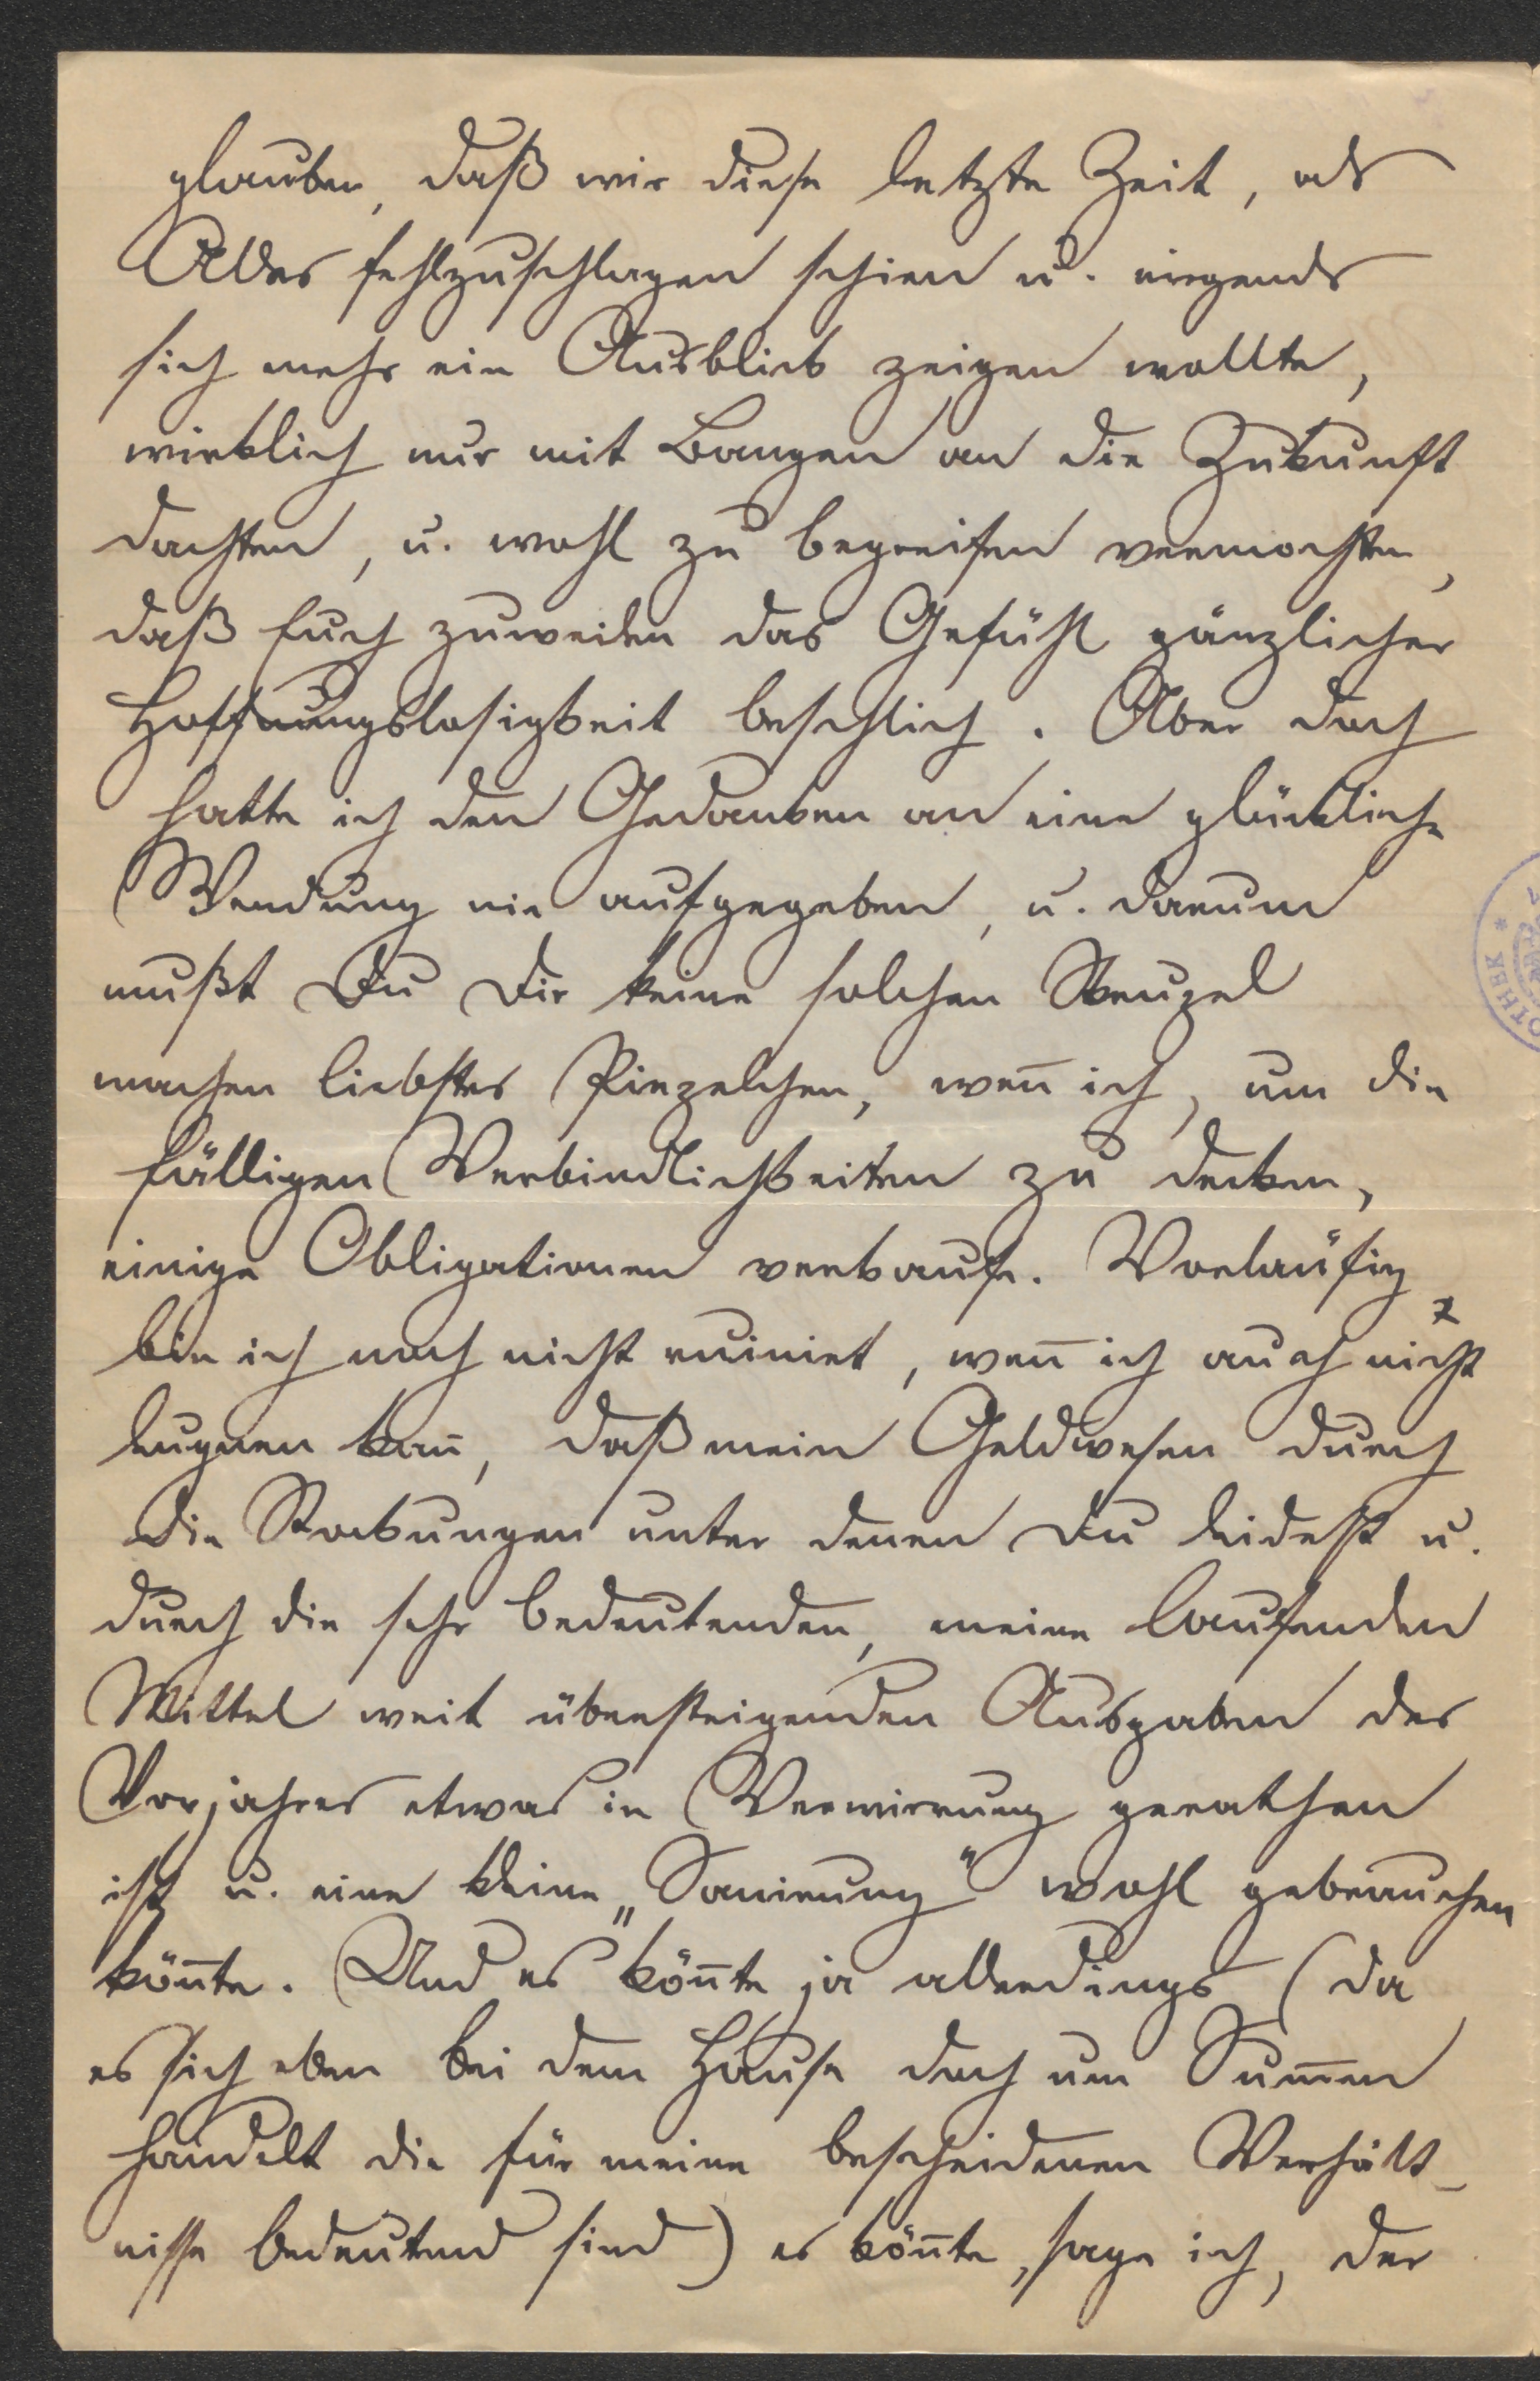 glauben, daß wir diese letzte Zeit, als
Alles fehlzuschlagen schien u. nirgends
sich mehr ein Ausblick zeigen wollte,
wirklich nur mit Bangen an die Zukunft
dachten, u. wohl zu begreifen vermochten,
daß Euch zuweilen das Gefühl gänzlicher
Hoffnungslosigkeit beschlich. Aber doch
hatte ich den Gedanken an eine glückliche
Wendung nie aufgegeben, u. darum
mußt Du Dir keine solchen Skrupel
machen liebstes Pinzelchen, wen̅ ich, um die
fälligen Verbindlichkeiten zu decken,
einige Obligationen verkaufe. Vorläufig
bin ich noch nicht ruinirt, wen̅ ich auch nicht
leugnen kan̅, daß mein Geldwesen durch
die Stockungen unter denen Du leidest u.
durch die sehr bedeutenden, meine laufenden
Mittel weit übersteigenden Ausgaben des
Vorjahres etwas in Verwirrung gerathen
ist u. eine kleine „Sanirung" wohl gebrauchen
kön̅te. Und es kön̅te ja allerdings (da
es sich eben bei dem Hause doch um Sum̅en
handelt die für meine bescheidenen Verhält-
nisse bedeutend sind) es kön̅te, sage ich, der
OTHEK *